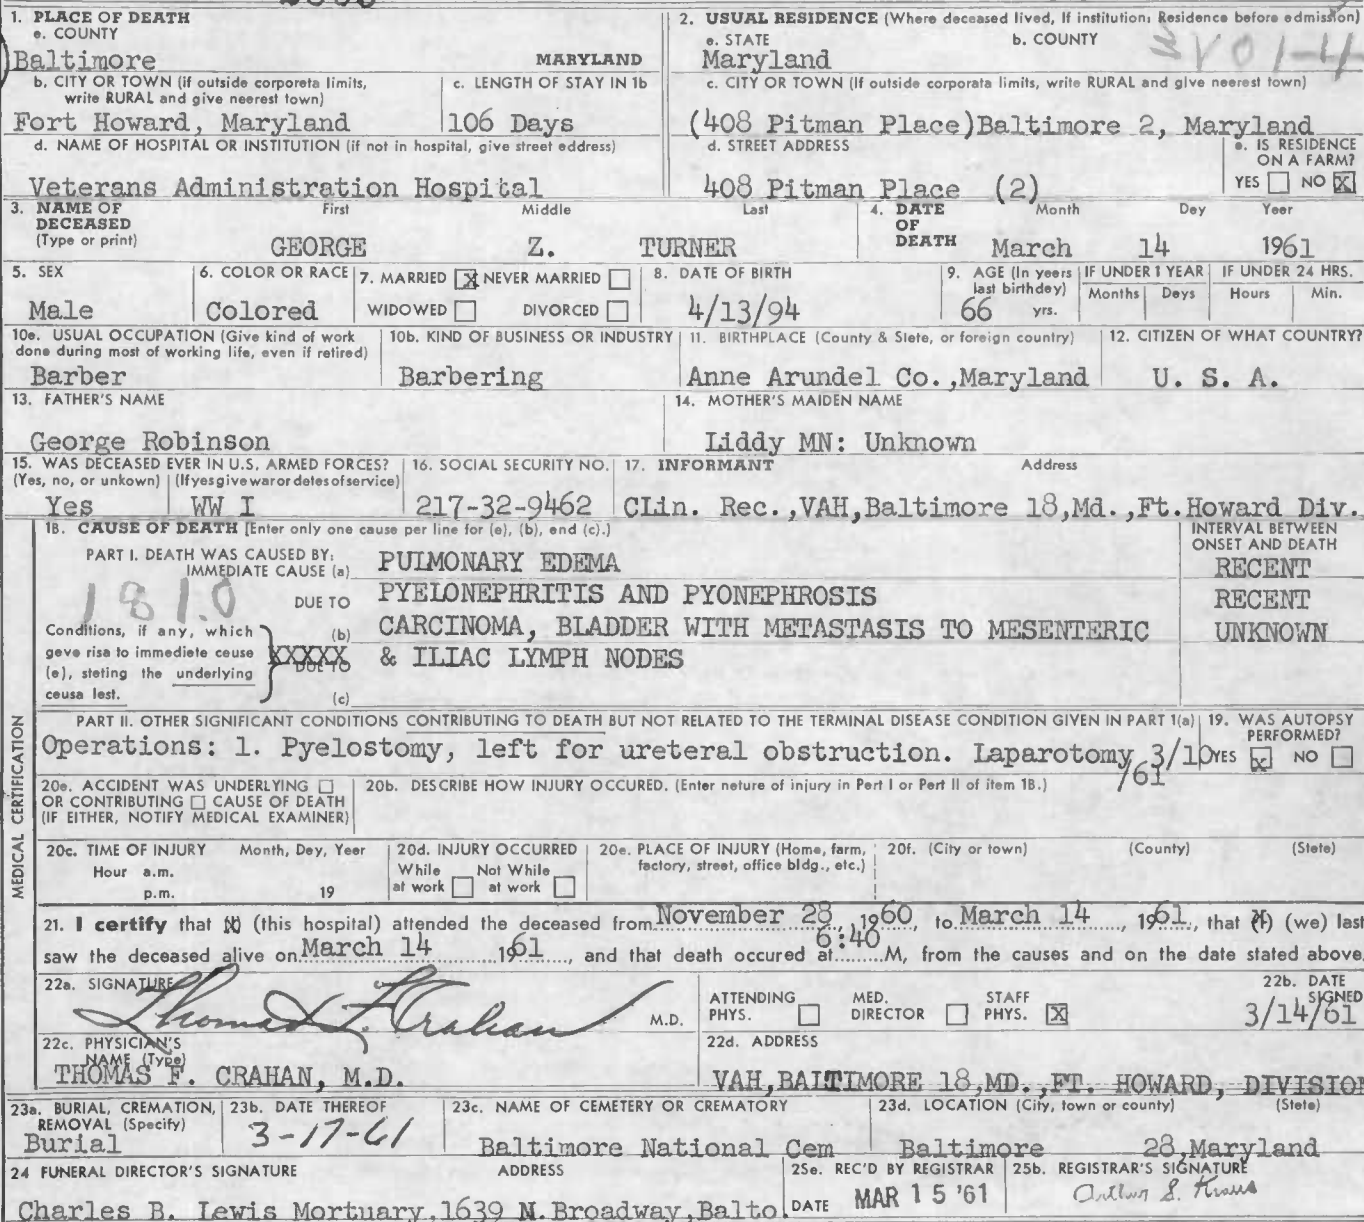 1. PLACE OF DEATH
a. COUNTY
Baltimore MARYLAND
b. CITY OR TOWN (if outside corporate limits, write RURAL and give nearest town)
Fort Howard, Maryland
c. LENGTH OF STAY IN 1b
106 Days
d. NAME OF HOSPITAL OR INSTITUTION (if not in hospital, give street address)
Veterans Administration Hospital
2. USUAL RESIDENCE (Where deceased lived, If institution: Residence before admission)
a. STATE
Maryland
b. COUNTY
V01-4
c. CITY OR TOWN (If outside corporate limits, write RURAL and give nearest town)
(408 Pitman Place)Baltimore 2, Maryland
d. STREET ADDRESS
408 Pitman Place (2)
e. IS RESIDENCE ON A FARM?
YES NO X
3. NAME OF DECEASED (Type or print)
First Middle Last
GEORGE Z. TURNER
4. DATE OF DEATH
Month Day Year
March 14 1961
5. SEX
Male
6. COLOR OR RACE
Colored
7. MARRIED X NEVER MARRIED
WIDOWED DIVORCED
8. DATE OF BIRTH
4/13/94
9. AGE (In years last birthday)
66 yrs.
IF UNDER 1 YEAR
Months Days
IF UNDER 24 HRS.
Hours Min.
10a. USUAL OCCUPATION (Give kind of work done during most of working life, even if retired)
Barber
10b. KIND OF BUSINESS OR INDUSTRY
Barbering
11. BIRTHPLACE (County & State, or foreign country)
Anne Arundel Co.,Maryland
12. CITIZEN OF WHAT COUNTRY?
U. S. A.
13. FATHER'S NAME
George Robinson
14. MOTHER'S MAIDEN NAME
Liddy MN: Unknown
15. WAS DECEASED EVER IN U.S. ARMED FORCES?
(Yes, no, or unkown) (If yes give war or dates of service)
Yes WW I
16. SOCIAL SECURITY NO.
217-32-9462
17. INFORMANT Address
CLin. Rec.,VAH,Baltimore 18,Md.,Ft.Howard Div.
MEDICAL CERTIFICATION
18. CAUSE OF DEATH [Enter only one cause per line for (a), (b), and (c).]
INTERVAL BETWEEN ONSET AND DEATH
PART I. DEATH WAS CAUSED BY:
IMMEDIATE CAUSE (a) PULMONARY EDEMA RECENT
181.0
DUE TO PYELONEPHRITIS AND PYONEPHROSIS RECENT
(b) CARCINOMA, BLADDER WITH METASTASIS TO MESENTERIC UNKNOWN
XXXXX DUE TO & ILIAC LYMPH NODES
(c)
Conditions, if any, which gave rise to immediate cause (a), stating the underlying cause last.
PART II. OTHER SIGNIFICANT CONDITIONS CONTRIBUTING TO DEATH BUT NOT RELATED TO THE TERMINAL DISEASE CONDITION GIVEN IN PART 1(a)
Operations: 1. Pyelostomy, left for ureteral obstruction. Laparotomy 3/10
/61
19. WAS AUTOPSY PERFORMED?
YES X NO
20a. ACCIDENT WAS UNDERLYING
OR CONTRIBUTING CAUSE OF DEATH
(IF EITHER, NOTIFY MEDICAL EXAMINER)
20b. DESCRIBE HOW INJURY OCCURED. (Enter nature of injury in Part I or Part II of item 18.)
20c. TIME OF INJURY Month, Day, Year
Hour a.m.
p.m. 19
20d. INJURY OCCURRED
While at work Not While at work
20e. PLACE OF INJURY (Home, farm, factory, street, office bldg., etc.)
20f. (City or town) (County) (State)
21. I certify that (I) (this hospital) attended the deceased from November 28, 1960, to March 14, 1961, that (I) (we) last
saw the deceased alive on March 14 1961, and that death occured at 6:40 M, from the causes and on the date stated above.
22a. SIGNATURE
Thomas F. Crahan M.D.
ATTENDING PHYS. MED. DIRECTOR STAFF PHYS. X
22b. DATE SIGNED
3/14/61
22c. PHYSICIAN'S NAME (Type)
THOMAS F. CRAHAN, M.D.
22d. ADDRESS
VAH,BALTIMORE 18,MD.,FT. HOWARD, DIVISION
23a. BURIAL, CREMATION, REMOVAL (Specify)
Burial
23b. DATE THEREOF
3-17-61
23c. NAME OF CEMETERY OR CREMATORY
Baltimore National Cem
23d. LOCATION (City, town or county) (State)
Baltimore 28,Maryland
24 FUNERAL DIRECTOR'S SIGNATURE ADDRESS
Charles B. Lewis Mortuary,1639 N.Broadway,Balto.
25a. REC'D BY REGISTRAR
DATE MAR 15 '61
25b. REGISTRAR'S SIGNATURE
Arthur S. Kraus